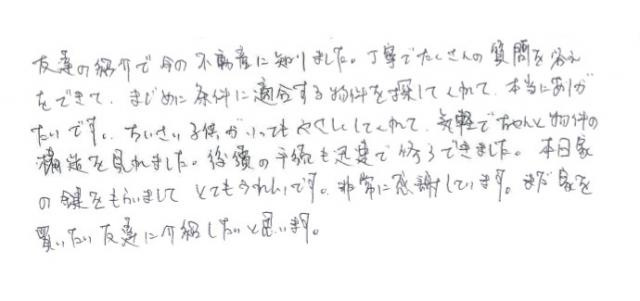 友達の紹介で今の不動産に知りました。丁寧でたくさんの質問を答え
をできて、まじめに条件に適合する物件を探してくれて、本当にありが
たいです。ちいさい子供がいてもやさしくしてくれて、気軽でちゃんと物件の
構造を見れました。後續の手続も迅速で修了できました。本日家
の鍵をもらいまして とてもうれしいです。非常に感謝しています。まだ家を
買いたい友達に介紹したいと思います。